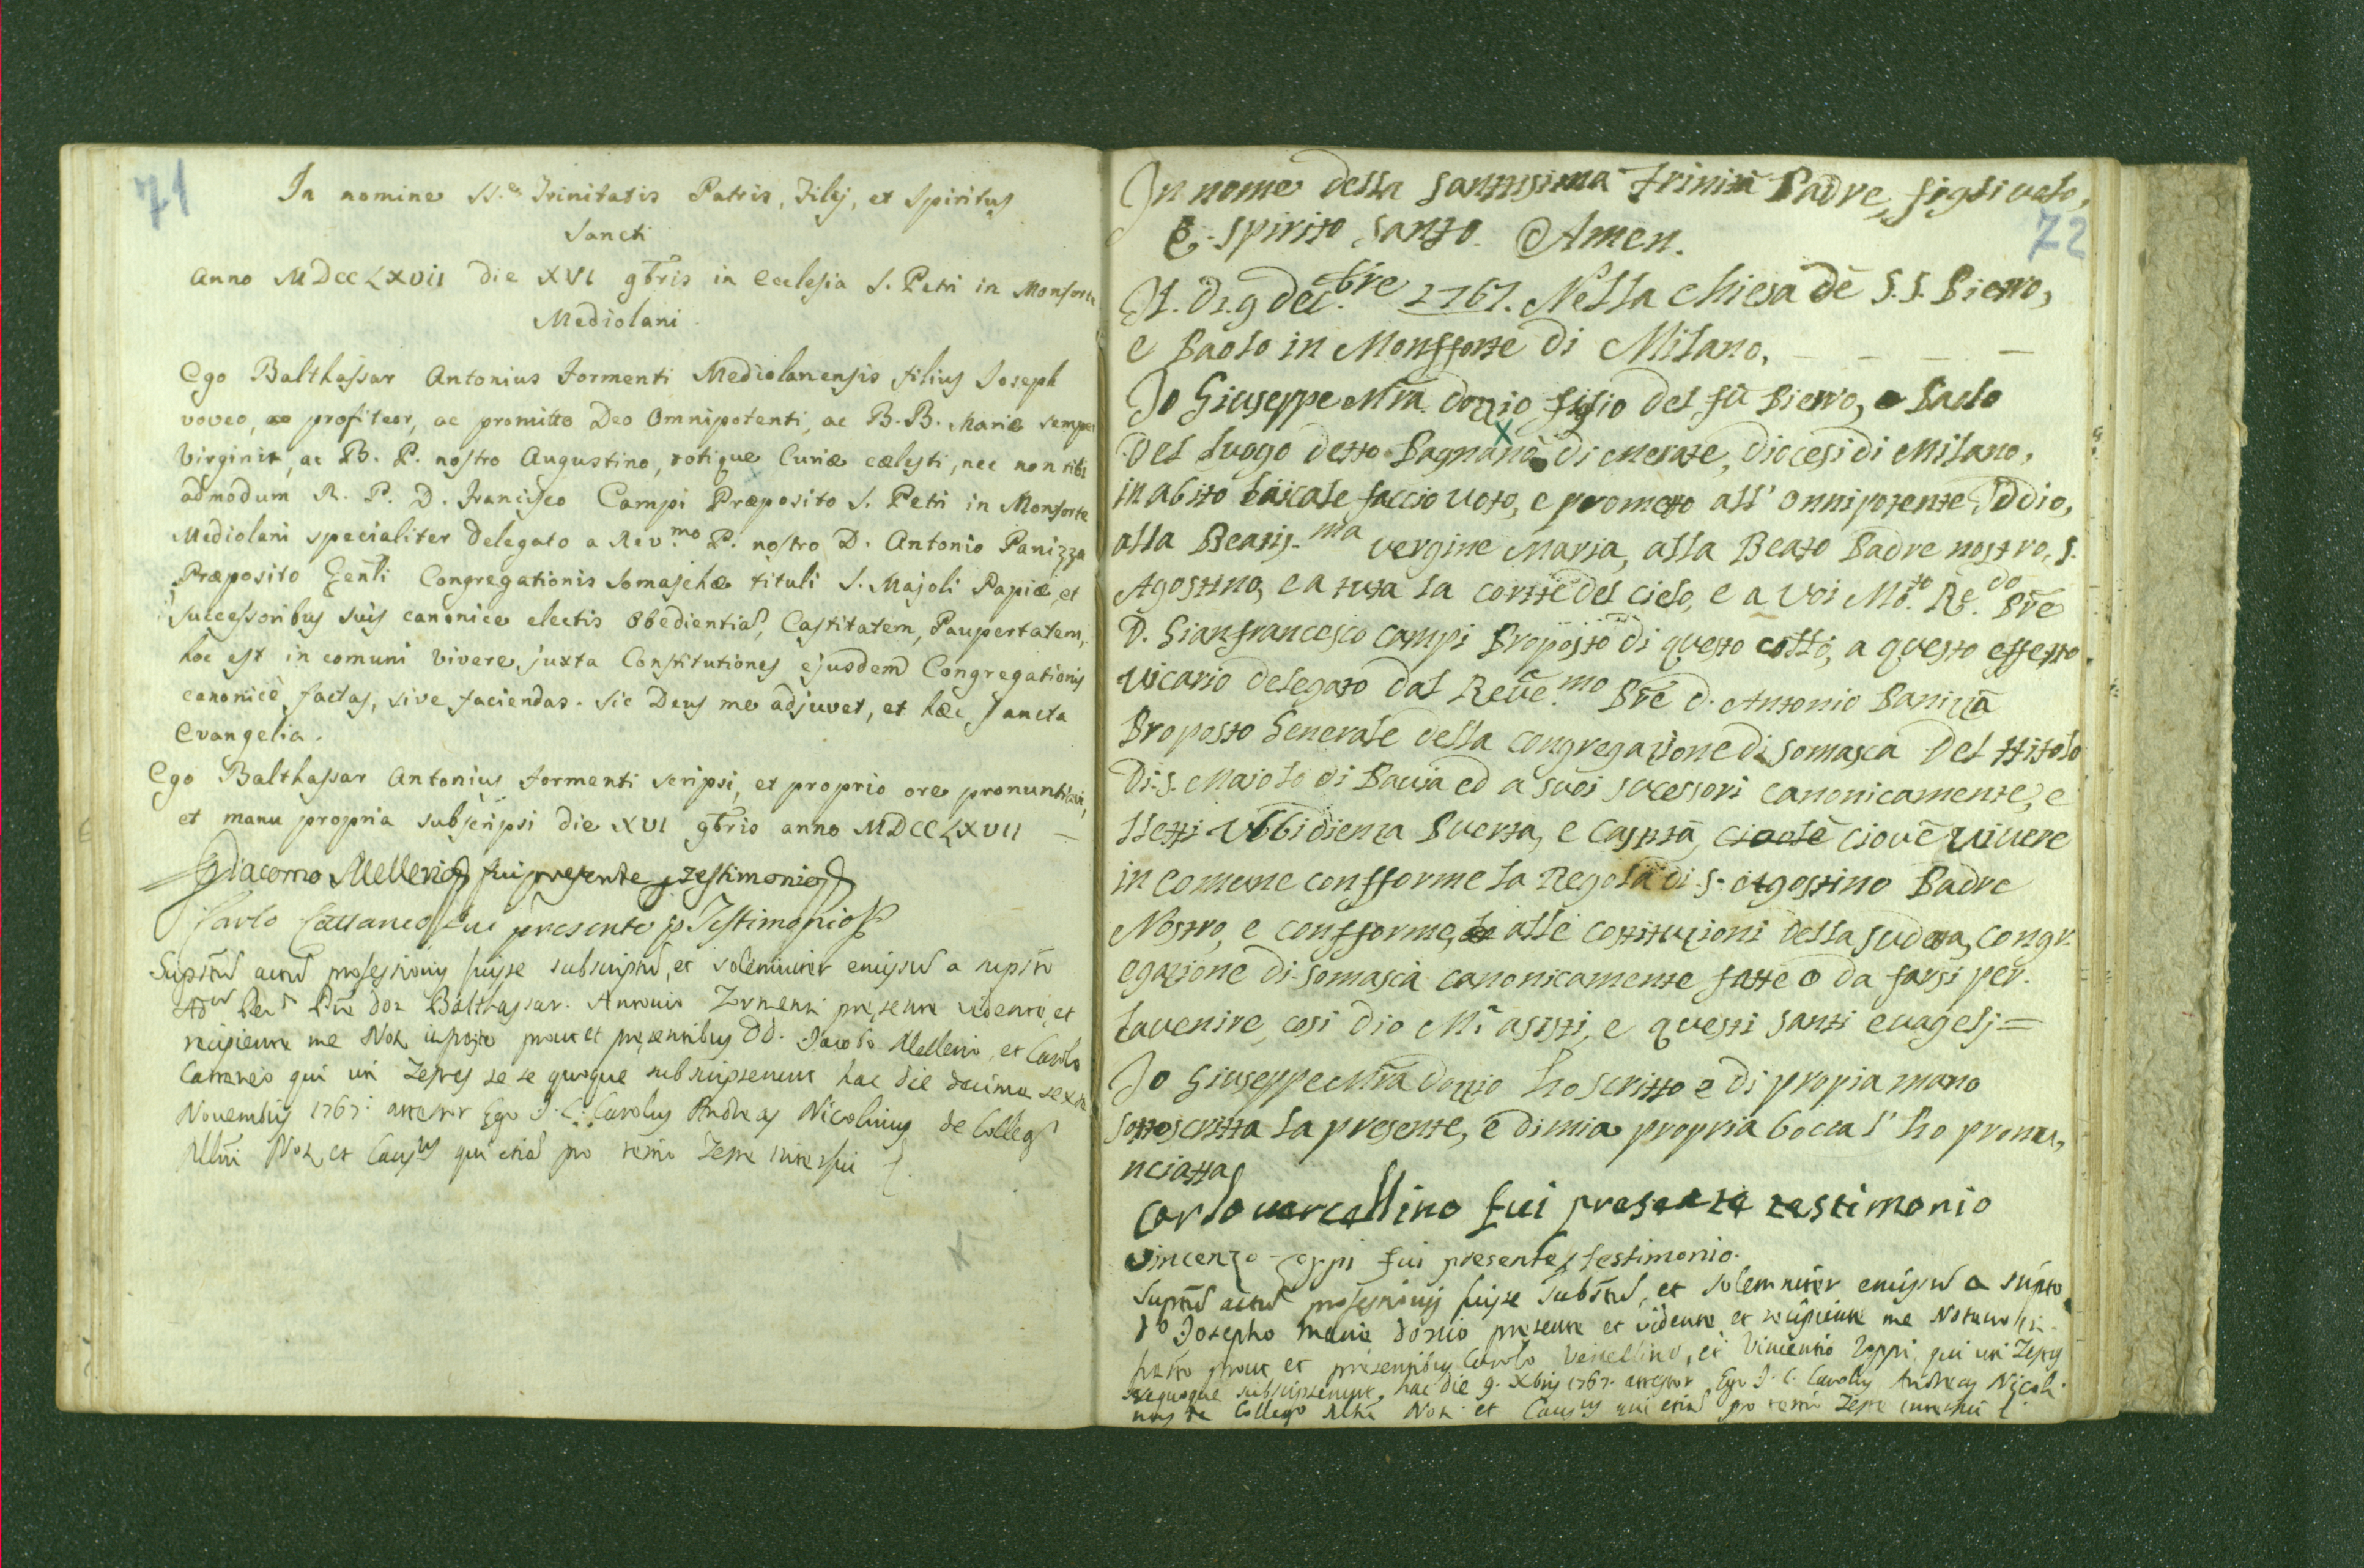 71
In nomine SS.æ Trinitatis Patris, Filij, et Spiritus
Sancti
Anno MDCCLXVII die XVI 9bris in Ecclesia S. Petri in Monforte
Mediolani.
Ego Balthassar Antonius Formenti Mediolanensis filius Joseph
voveo, ac profiteor, ac promitto Deo Omnipotenti, ac B. B. Mariæ semper
Virginis, ac B. P. nostro Augustino, totique Curiæ cælesti, nec non tibi
admodum R. P. D. Francisco Campi Præposito S. Petri in Monforte
Mediolani specialiter delegato a Rev.mo P. nostro D. Antonio Panizza
Præposito Gen̄li Congregationis Somaschæ tituli S. Majoli Papiæ, et
successoribus suis canonice electis Obedientiam, Castitatem, Paupertatem,
hoc est in comuni vivere, juxta Constitutiones ejusdem Congregationis
canonicè factas, sive faciendas. Sic Deus me adjuvet, et hæc Sancta
Evangelia.
Ego Balthassar Antonius Formenti scripsi, et proprio ore pronuntiavi,
et manu propria subscripsi die XVI 9bris anno MDCCLXVII —
Giacomo Mellerio fui presente p testimonio
Carlo Cattaneo fui presente p Testimonio
Supstum actum professionis fuisse subscriptum, et solemniter emissum a supsto
Adm Rev Pre don Balthassar Antonio Formenti presente vidente, et
recipiente me Not infrasto prout et presentibus DD. Jacobo Mellerio, et Carolo
Cattaneo qui uti Testes se se quoque subscripserunt hac die decima sexta
Novembris 1767. attestor Ego J. C. Carolus Andreas Nicolinus de Collego
Mlni Not, et Causus qui etiam pro tertio Teste interfui
72
In nome della santissima trinità Padre, figlivolo,
E spirito santo. Amen.
A. di. 9 dec.bre 1767. Nella chiesa dè S.S. Pietro,
e Paolo in Monfforte di Milano,
Io Giuseppe Mīa Dozio figlio del fù Pietro, e Paolo
Del luogo detto Pagnano di Merate, diocesi di Milano,
in abito laicale faccio voto, e prometto all' onnipotente Iddio,
alla Beatis.ma vergine Maria, alla Beato Padre nostro, S.
Agostino, e a tuta la cortte del cielo, e a Voi Mo.to Re.do Prē
D. Gianfrancesco campi Proposto di questo collo, a questo effetto
vicario delegato dal Reve.mo Prē d. Antonio Paniza
Proposto Generale della congregazione di somasca Del ttitolo
Di. S. Majolo di Pavia ed a suoi sucessori canonicamente, e
lletti Ubbidienza Puerta, e Castità, cioelè ciovè vivere
in comune confforme la Regola di S. Agostino Padre
Nostro, e confforme, alle costituzioni della sudetta, congr
egazione di somasca canonicamente fatte o da farsi per.
lavenire, cosi dio Mi asisti, e questi santi evagelj =
Io Giuseppe Mīa Dozio ho scritto e di propia mano
sottoscritta la presente, e di mia propria bocca l' ho pronu,
nciatta
Carlo vercellino fui presente testimonio
Vincenzo Zoppi fui presente testimonio.
Suprum actum professionis fuisse Substum, et solemniter emissum a supto
Do Josepho Maria Dozio presente et vidente et recipiente me Notaro in-
frasto prout et presentibus Carolo Vercellino, et Vincentio Zoppi qui uti Testes
sequoque subscripserunt, hac die 9. Xbris 1767. attestor Ego J. C. Carolus Andreas Nicoli
nus de Collego Mlni Not. et Causus qui etiam pro tertio Teste interfui